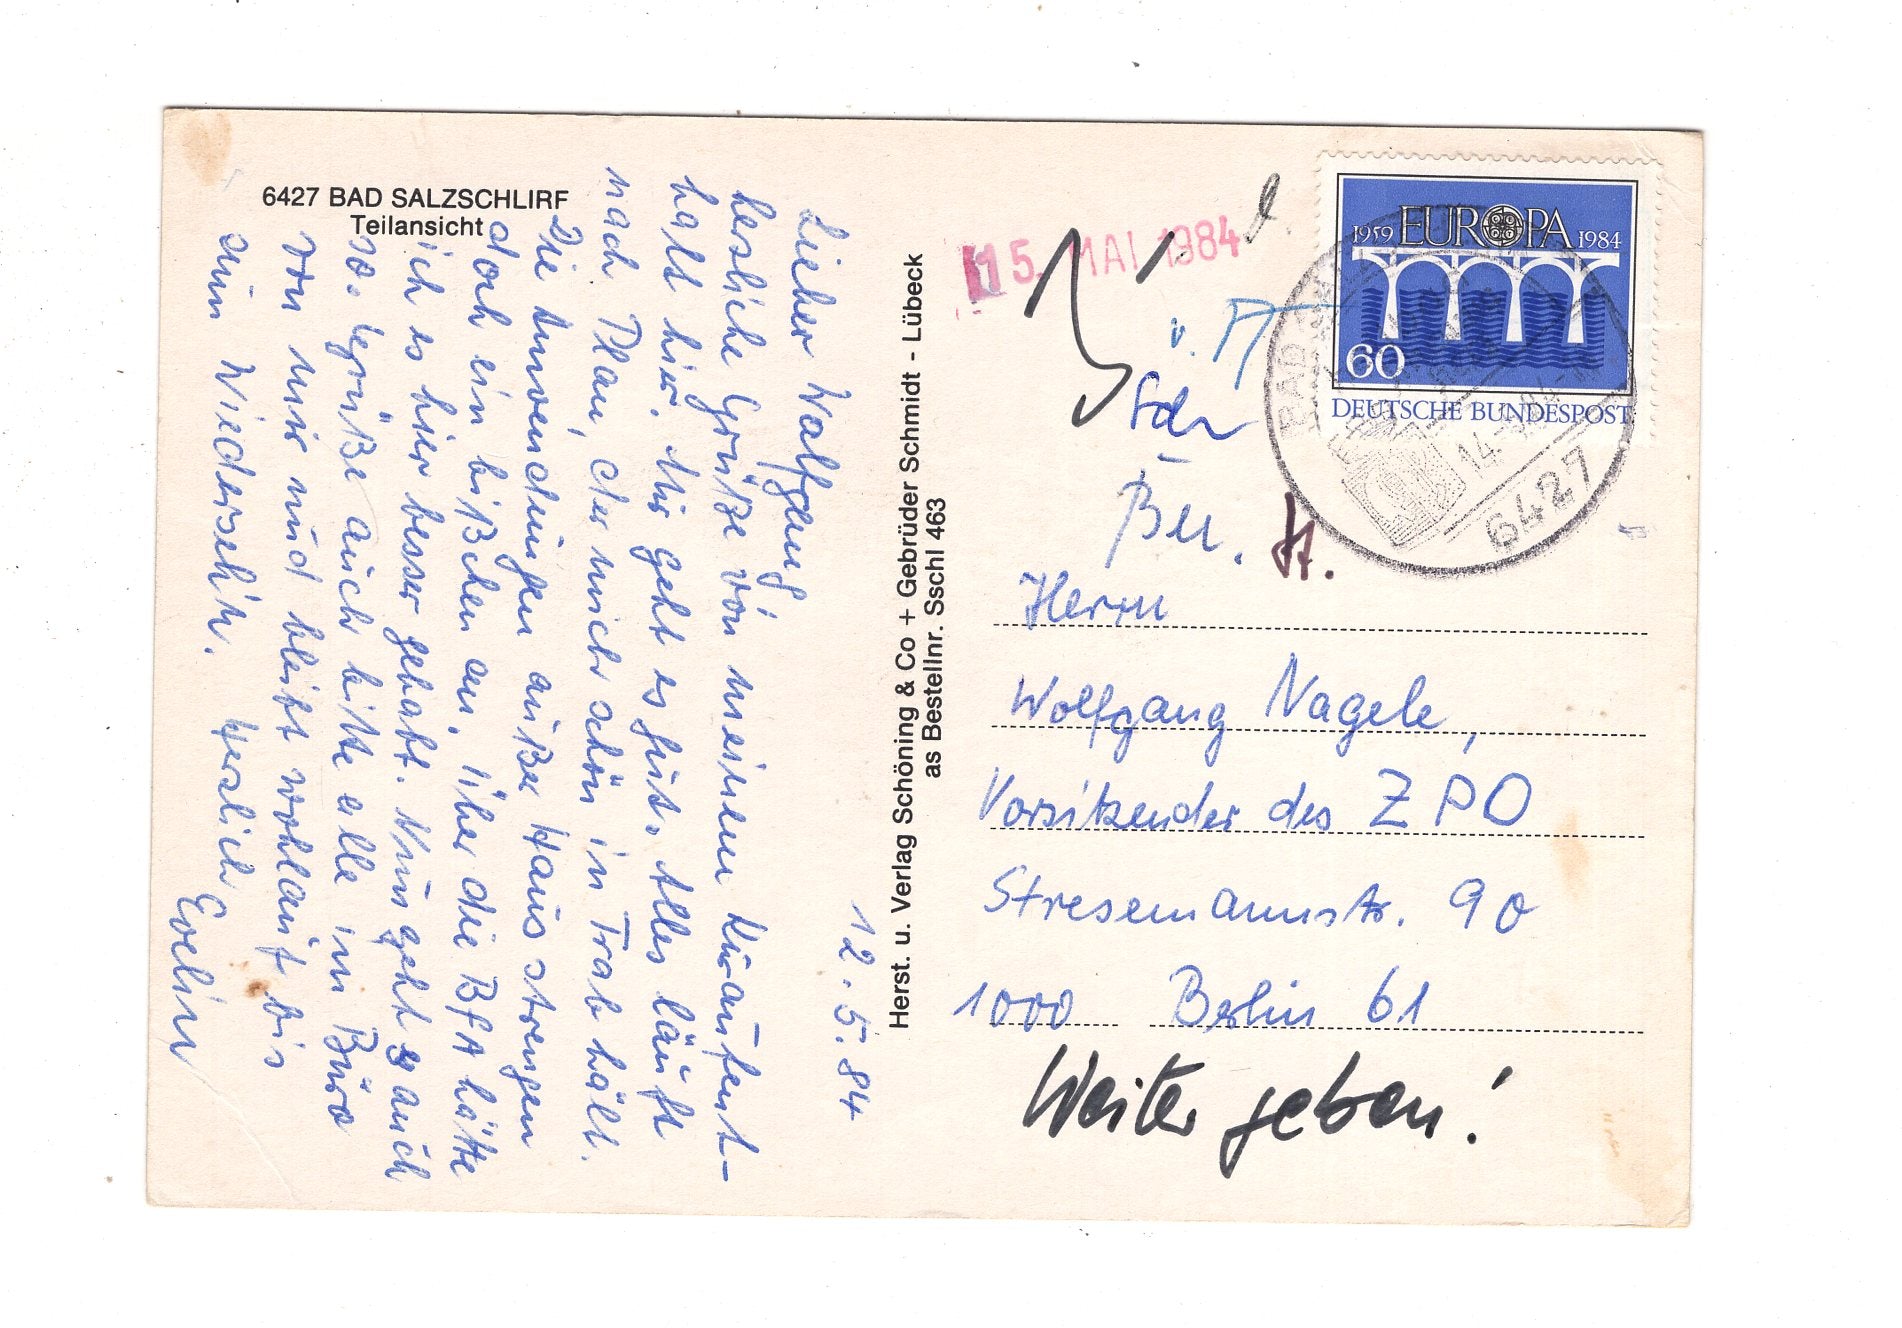 6427 BAD SALZSCHLIRF
Teilansicht
12.5.84
Lieber Wolfgang
hesliche Grüße von meinem Kuraufent-
halt hier. Mir geht es gut. Alles läuft
nach Plan, der mich schön in Trab hält.
Die Anwendungen außer Haus strengen
doch ein bißchen an. Über die BfA hätte
ich es hier besser gehabt. Nun geht es auch
so. Grüße auch bitte alle im Büro
von mir und bleibt wohlauf bis
zum Wiedersehn. Herslich
Evelin
Herst. u. Verlag Schöning & Co + Gebrüder Schmidt - Lübeck
as Bestellnr. Sschl 463
15. MAI 1984
1959 EUROPA 1984
60
DEUTSCHE BUNDESPOST
BAD SALZ
14.-5.84
6427
Herrn
Wolfgang Nagele,
Vorsitzender des ZPO
Stresemannstr. 90
1000 Berlin 61
Weiter geben!